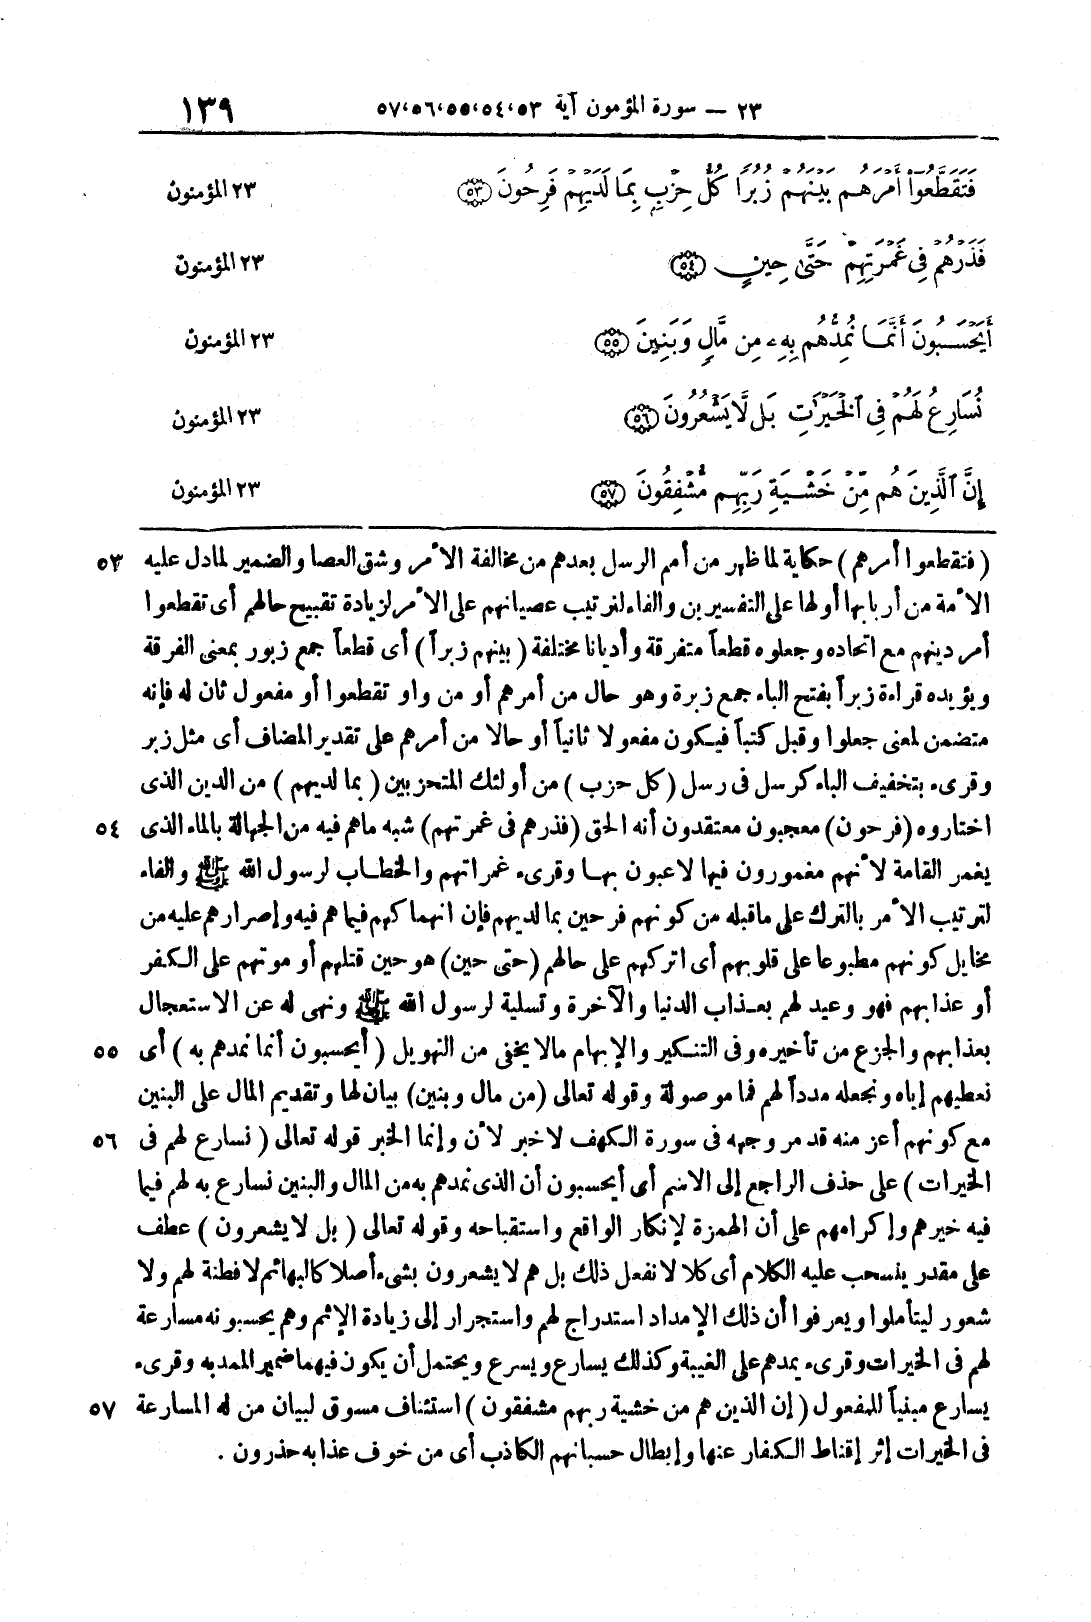 ٢٣ — سورة المؤمنون آية ٥٣،٥٤،٥٥،٥٦،٥٧ ١٣٩
فَتَقَطَّعُوٓا۟ أَمْرَهُم بَيْنَهُمْ زُبُرًا كُلُّ حِزْبٍ بِمَا لَدَيْهِمْ فَرِحُونَ ﴿٥٣﴾ ٢٣ المؤمنون
فَذَرْهُمْ فِى غَمْرَتِهِمْ حَتَّىٰ حِينٍ ﴿٥٤﴾ ٢٣ المؤمنون
أَيَحْسَبُونَ أَنَّمَا نُمِدُّهُم بِهِۦ مِن مَّالٍ وَبَنِينَ ﴿٥٥﴾ ٢٣ المؤمنون
نُسَارِعُ لَهُمْ فِى ٱلْخَيْرَٰتِ بَل لَّا يَشْعُرُونَ ﴿٥٦﴾ ٢٣ المؤمنون
إِنَّ ٱلَّذِينَ هُم مِّنْ خَشْيَةِ رَبِّهِم مُّشْفِقُونَ ﴿٥٧﴾ ٢٣ المؤمنون
(فتقطعوا أمرهم) حكاية لما ظهر من أمم الرسل بعدهم من مخالفة الأمر وشق العصا والضمير لما دل عليه ٥٣
الأمة من أربابها أو لها على التفسيرين والفاء لترتيب عصيانهم على الأمر لزيادة تقبيح حالهم أى تقطعوا
أمر دينهم مع اتحاده وجعلوه قطعاً متفرقة وأديانا مختلفة (بينهم زبراً) أى قطعاً جمع زبور بمعنى الفرقة
ويؤيده قراءة زبراً بفتح الباء جمع زبرة وهو حال من أمرهم أو من واو تقطعوا أو مفعول ثان له فإنه
متضمن لمعنى جعلوا وقبل كتباً فيكون مفعولا ثانياً أو حالا من أمرهم على تقدير المضاف أى مثل زبر
وقرىء بتخفيف الباء كرسل فى رسل (كل حزب) من أولئك المتحزبين (بما لديهم) من الدين الذى
اختاروه (فرحون) معجبون معتقدون أنه الحق (فذرهم فى غمرتهم) شبه ماهم فيه من الجهالة بالماء الذى ٥٤
يغمر القامة لأنهم مغمورون فيها لاعبون بها وقرىء غمراتهم والخطاب لرسول الله ﷺ والفاء
لترتيب الأمر بالترك على ماقبله من كونهم فرحين بما لديهم فإن انهماكهم فيما هم فيه وإصرارهم عليه من
مخايل كونهم مطبوعا على قلوبهم أى اتركهم على حالهم (حتى حين) هو حين قتلهم أو موتهم على الكفر
أو عذابهم فهو وعيد لهم بعذاب الدنيا والآخرة وتسلية لرسول الله ﷺ ونهى له عن الاستعجال
بعذابهم والجزع من تأخيره وفى التنكير والإبهام مالا يخفى من التهويل (أيحسبون أنما نمدهم به) أى ٥٥
نعطيهم إياه ونجعله مدداً لهم فما موصولة وقوله تعالى (من مال وبنين) بيان لها وتقديم المال على البنين
مع كونهم أعز منه قد مر وجهه فى سورة الكهف لاخبر لأن وإنما الخبر قوله تعالى (نسارع لهم فى ٥٦
الخيرات) على حذف الراجع إلى الاسم أى أيحسبون أن الذى نمدهم به من المال والبنين نسارع به لهم فيما
فيه خيرهم وإكرامهم على أن الهمزة لإنكار الواقع واستقباحه وقوله تعالى (بل لايشعرون) عطف
على مقدر ينسحب عليه الكلام أى كلا لانفعل ذلك بل هم لايشعرون بشىء أصلا كالبهائم لافطنة لهم ولا
شعور ليتأملوا ويعرفوا أن ذلك الإمداد استدراج لهم واستجرار إلى زيادة الإثم وهم يحسبونه مسارعة
لهم فى الخيرات وقرىء يمدهم على الغيبة وكذلك يسارع ويسرع ويحتمل أن يكون فيهما ضمير الممد به وقرىء
يسارع مبنياً للمفعول (إن الذين هم من خشية ربهم مشفقون) استئناف مسوق لبيان من له المسارعة ٥٧
فى الخيرات إثر إقناط الكفار عنها وإبطال حسبانهم الكاذب أى من خوف عذابه حذرون .